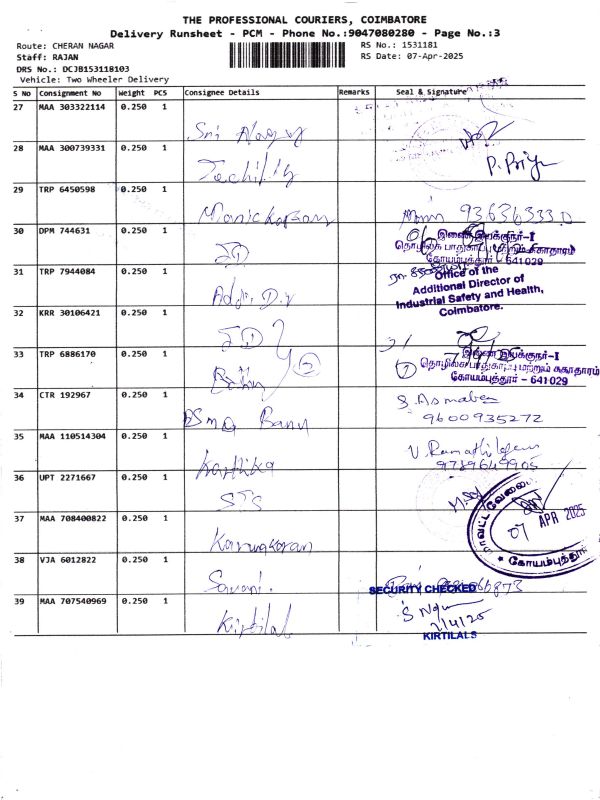 THE PROFESSIONAL COURIERS, COIMBATORE
Delivery Runsheet - PCM - Phone No.:9047080280 - Page No.:3
Route: CHERAN NAGAR
RS No.: 1531181
Staff: RAJAN
RS Date: 07-Apr-2025
DRS No.: DCJB153118103
Vehicle: Two Wheeler Delivery
S No Consignment No Weight PCS Consignee Details Remarks Seal & Signature
27 MAA 303322114 0.250 1
Sri
28 MAA 300739331 0.250 1
P. Priya
29 TRP 6450598 0.250 1
Manickaran
30 DPM 744631 0.250 1
JD
இணை இயக்குநர்-I
தொழிலக பாதுகாப்பு மற்றும் சுகாதாரம்
கோயம்புத்தூர் - 641029
31 TRP 7944084 0.250 1
Addi. Dir
Office of the
Additional Director of
Industrial Safety and Health,
Coimbatore.
32 KRR 30106421 0.250 1
JD
33 TRP 6886170 0.250 1
2
இணை இயக்குநர்-I
தொழிலக பாதுகாப்பு மற்றும் சுகாதாரம்
கோயம்புத்தூர் - 641029
34 CTR 192967 0.250 1
Banu
S. Asma
9600935272
35 MAA 110514304 0.250 1
Karthika
9789649905
36 UPT 2271667 0.250 1
STS
மாவட்ட வேலை
07 APR 2025
கோயம்புத்தூர்
37 MAA 708400822 0.250 1
38 VJA 6012822 0.250 1
SECURITY CHECKED
39 MAA 707540969 0.250 1
Kirtilal
KIRTILALS